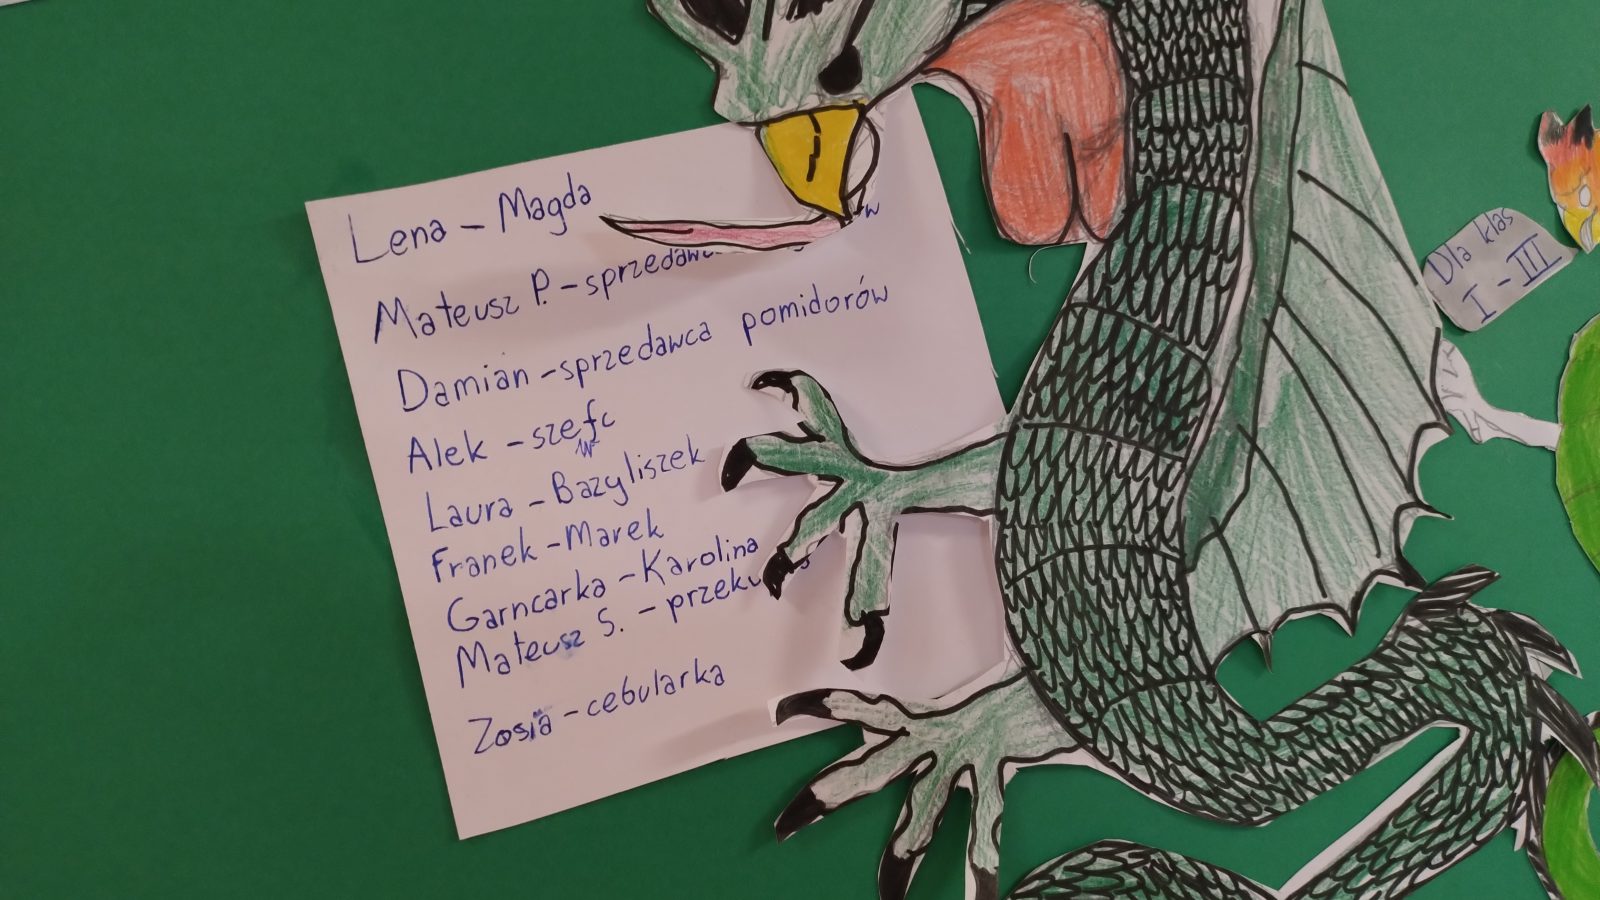 Lena - Magda
Mateusz P. - 
Damian - sprzedawca pomidorów
Alek - szefc
w
Laura - Bazyliszek
Franek - Marek
Garncarka - Karolina
Mateusz S. -
Zosia - cebularka
Dla klas
I - III